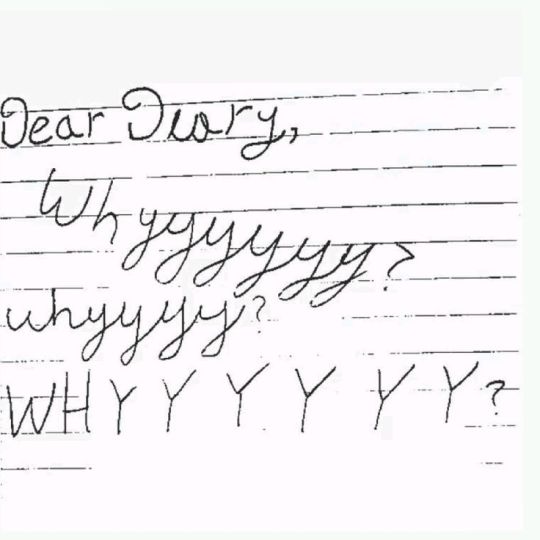 Dear Diary,
Whyyyyyyy?
whyyyyy?
WHYYYYYY?